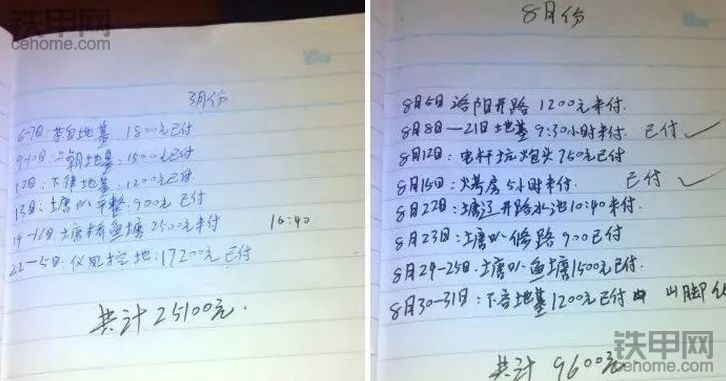 铁甲网
cehome.com
3月份
6-7日:茶白地基.1800元已付
9-10日:三朝地基.1500元已付
12日:下春地基.1200元已付
13日:土唐口平整.900元已付
14-16日:土唐 鱼塘2500元未付 16:40
22-5日.仪凤挖地:17200元已付
共计25100元.
8月份
8月5日 洛阳开路 1200元未付.
8月8日—21日 土地基 9:30小时未付. 已付 ✓
8月12日:电杆坑炮头750元已付
8月15日:烤房5小时未付. 已付 ✓
8月22日:土唐辽开路水池10:40未付.
8月23日:土唐口修路900已付
8月24-25日.土唐口鱼塘1500元已付.
8月30-31日:下春地基1200元已付 山脚
共计 9600元
铁甲网
cehome.com